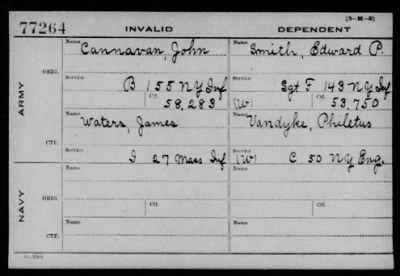 (3-M-3)
77264 INVALID DEPENDENT
Name Cannavan, John Name Smith, Edward P.
ORIG.
Service B 155 NY Inf Service Sgt F 143 NY Inf
Ctf. 58,283 (W) Ctf. 53,750
ARMY
Name Waters, James Name Vandyke, Philetus
CTF.
Service I 27 Mass Inf Service (W) C 50 NY Eng.
Name Name
ORIG.
Service Ctf. Service Ctf.
NAVY
Name Name
CTF.
Service Service